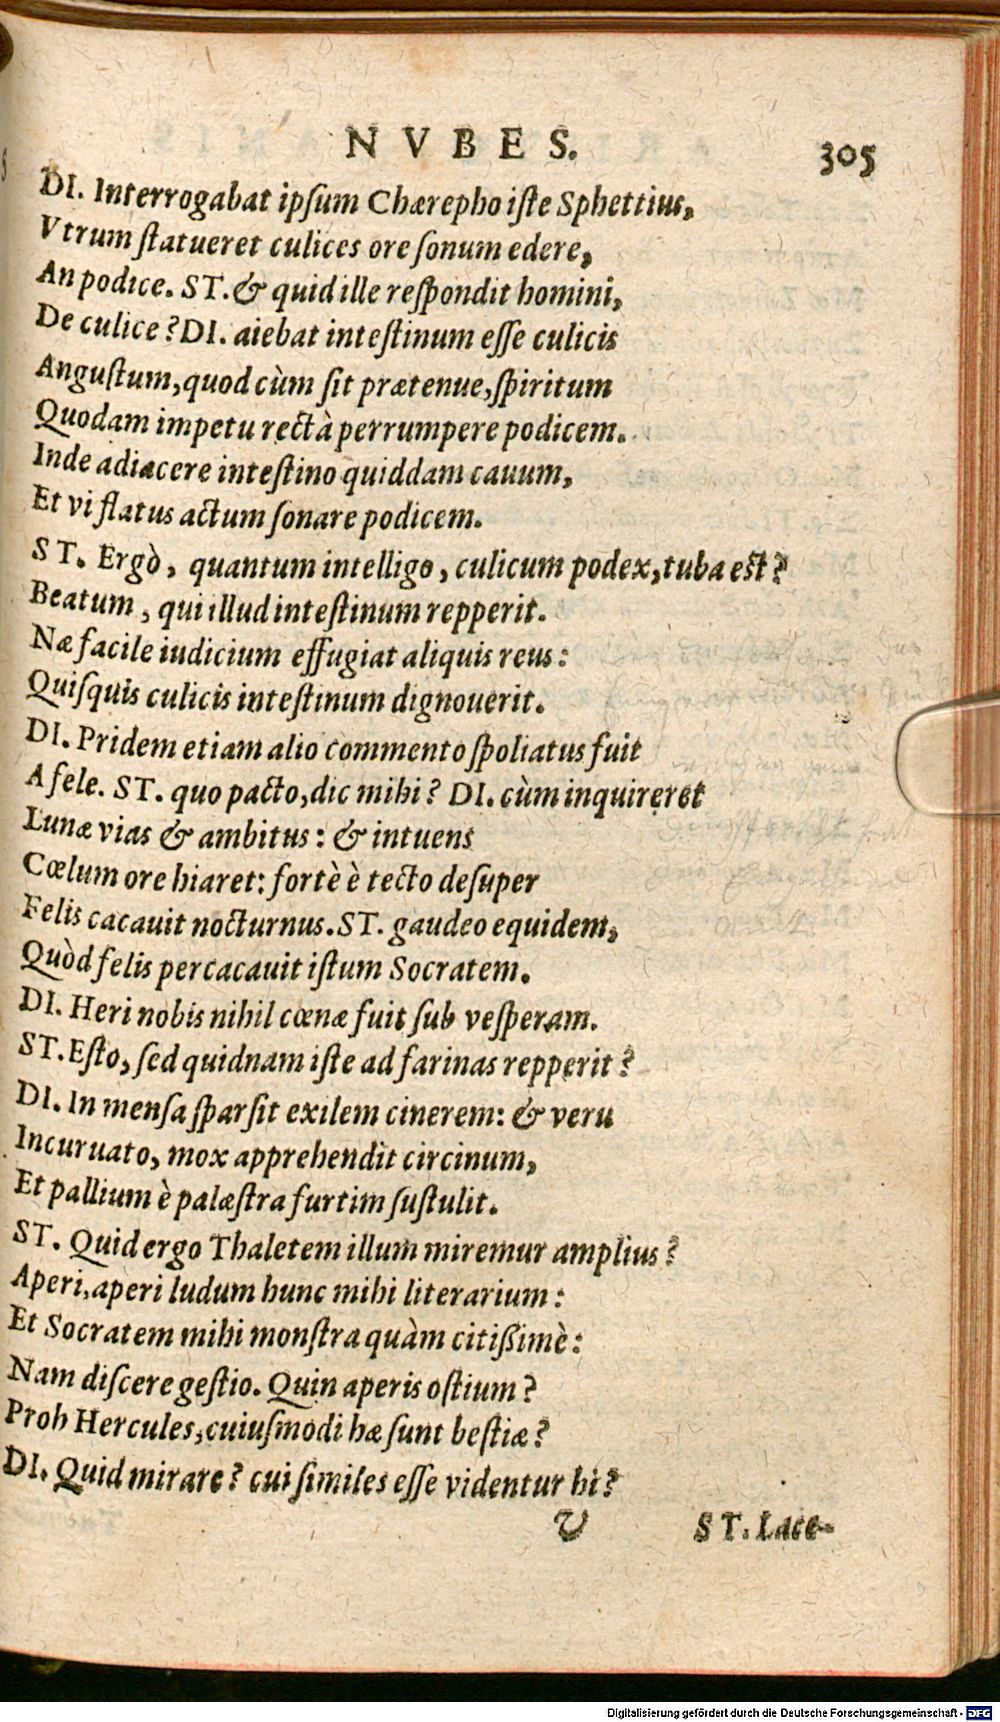 NVBES. 305
DI. Interrogabat ipſum Chærepho iſte Sphettius,
Vtrum ſtatueret culices ore ſonum edere,
An podice. ST. & quid ille reſpondit homini,
De culice? DI. aiebat inteſtinum eſſe culicis
Anguſtum, quod cùm ſit prætenue, ſpiritum
Quodam impetu rectà perrumpere podicem.
Inde adiacere inteſtino quiddam cauum,
Et vi flatus actum ſonare podicem.
ST. Ergò, quantum intelligo, culicum podex, tuba eſt?
Beatum, qui illud inteſtinum repperit.
Næ facile iudicium effugiat aliquis reus:
Quiſquis culicis inteſtinum dignouerit.
DI. Pridem etiam alio commento ſpoliatus fuit
A fele. ST. quo pacto, dic mihi? DI. cùm inquireret
Lunæ vias & ambitus: & intuens
Cœlum ore hiaret: fortè è tecto deſuper
Felis cacauit nocturnus. ST. gaudeo equidem,
Quòd felis percacauit iſtum Socratem.
DI. Heri nobis nihil cœnæ fuit ſub veſperam.
ST. Eſto, ſed quidnam iſte ad farinas repperit?
DI. In menſa ſparſit exilem cinerem: & veru
Incuruato, mox apprehendit circinum,
Et pallium è palæſtra furtim ſuſtulit.
ST. Quid ergo Thaletem illum miremur amplius?
Aperi, aperi ludum hunc mihi literarium:
Et Socratem mihi monſtra quàm citißimè:
Nam diſcere geſtio. Quin aperis oſtium?
Proh Hercules, cuiuſmodi hæ ſunt beſtiæ?
DI. Quid mirare? cui ſimiles eſſe videntur hi?
V ST. Lace-
Digitalisierung gefördert durch die Deutsche Forschungsgemeinschaft - DFG